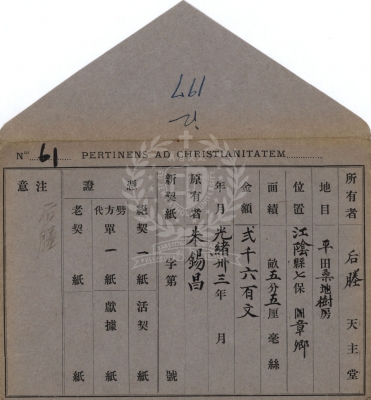 197
Nᵘˢ 61 PERTINENS AD CHRISTIANITATEM
所有者 后塍 天主堂
地目 平田桑地樹房
位置 江陰縣七保 圖章鄉
面積 畝五分五厘毫絲
金額 弍千六百文
年月 光緒卅三年 月
原有者 朱錫昌
新契紙 字第 號
憑證
絕契 紙 活契 紙
代方單 一 紙 獻據 紙
老契 紙
注意
后塍